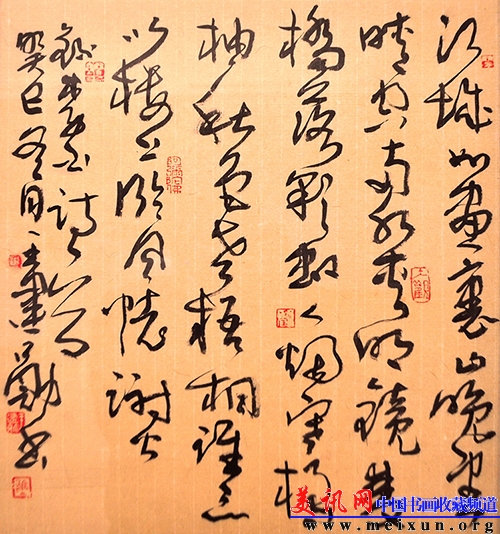 江城如畫裏山晚望
晴空兩水夾明鏡雙
橋落彩虹人烟寒橘
柚秋色老梧桐誰念
北樓上臨風懷謝公
錄李白詩一首
癸巳冬月王勛書
美讯网 中国书画收藏频道
www.meixun.org